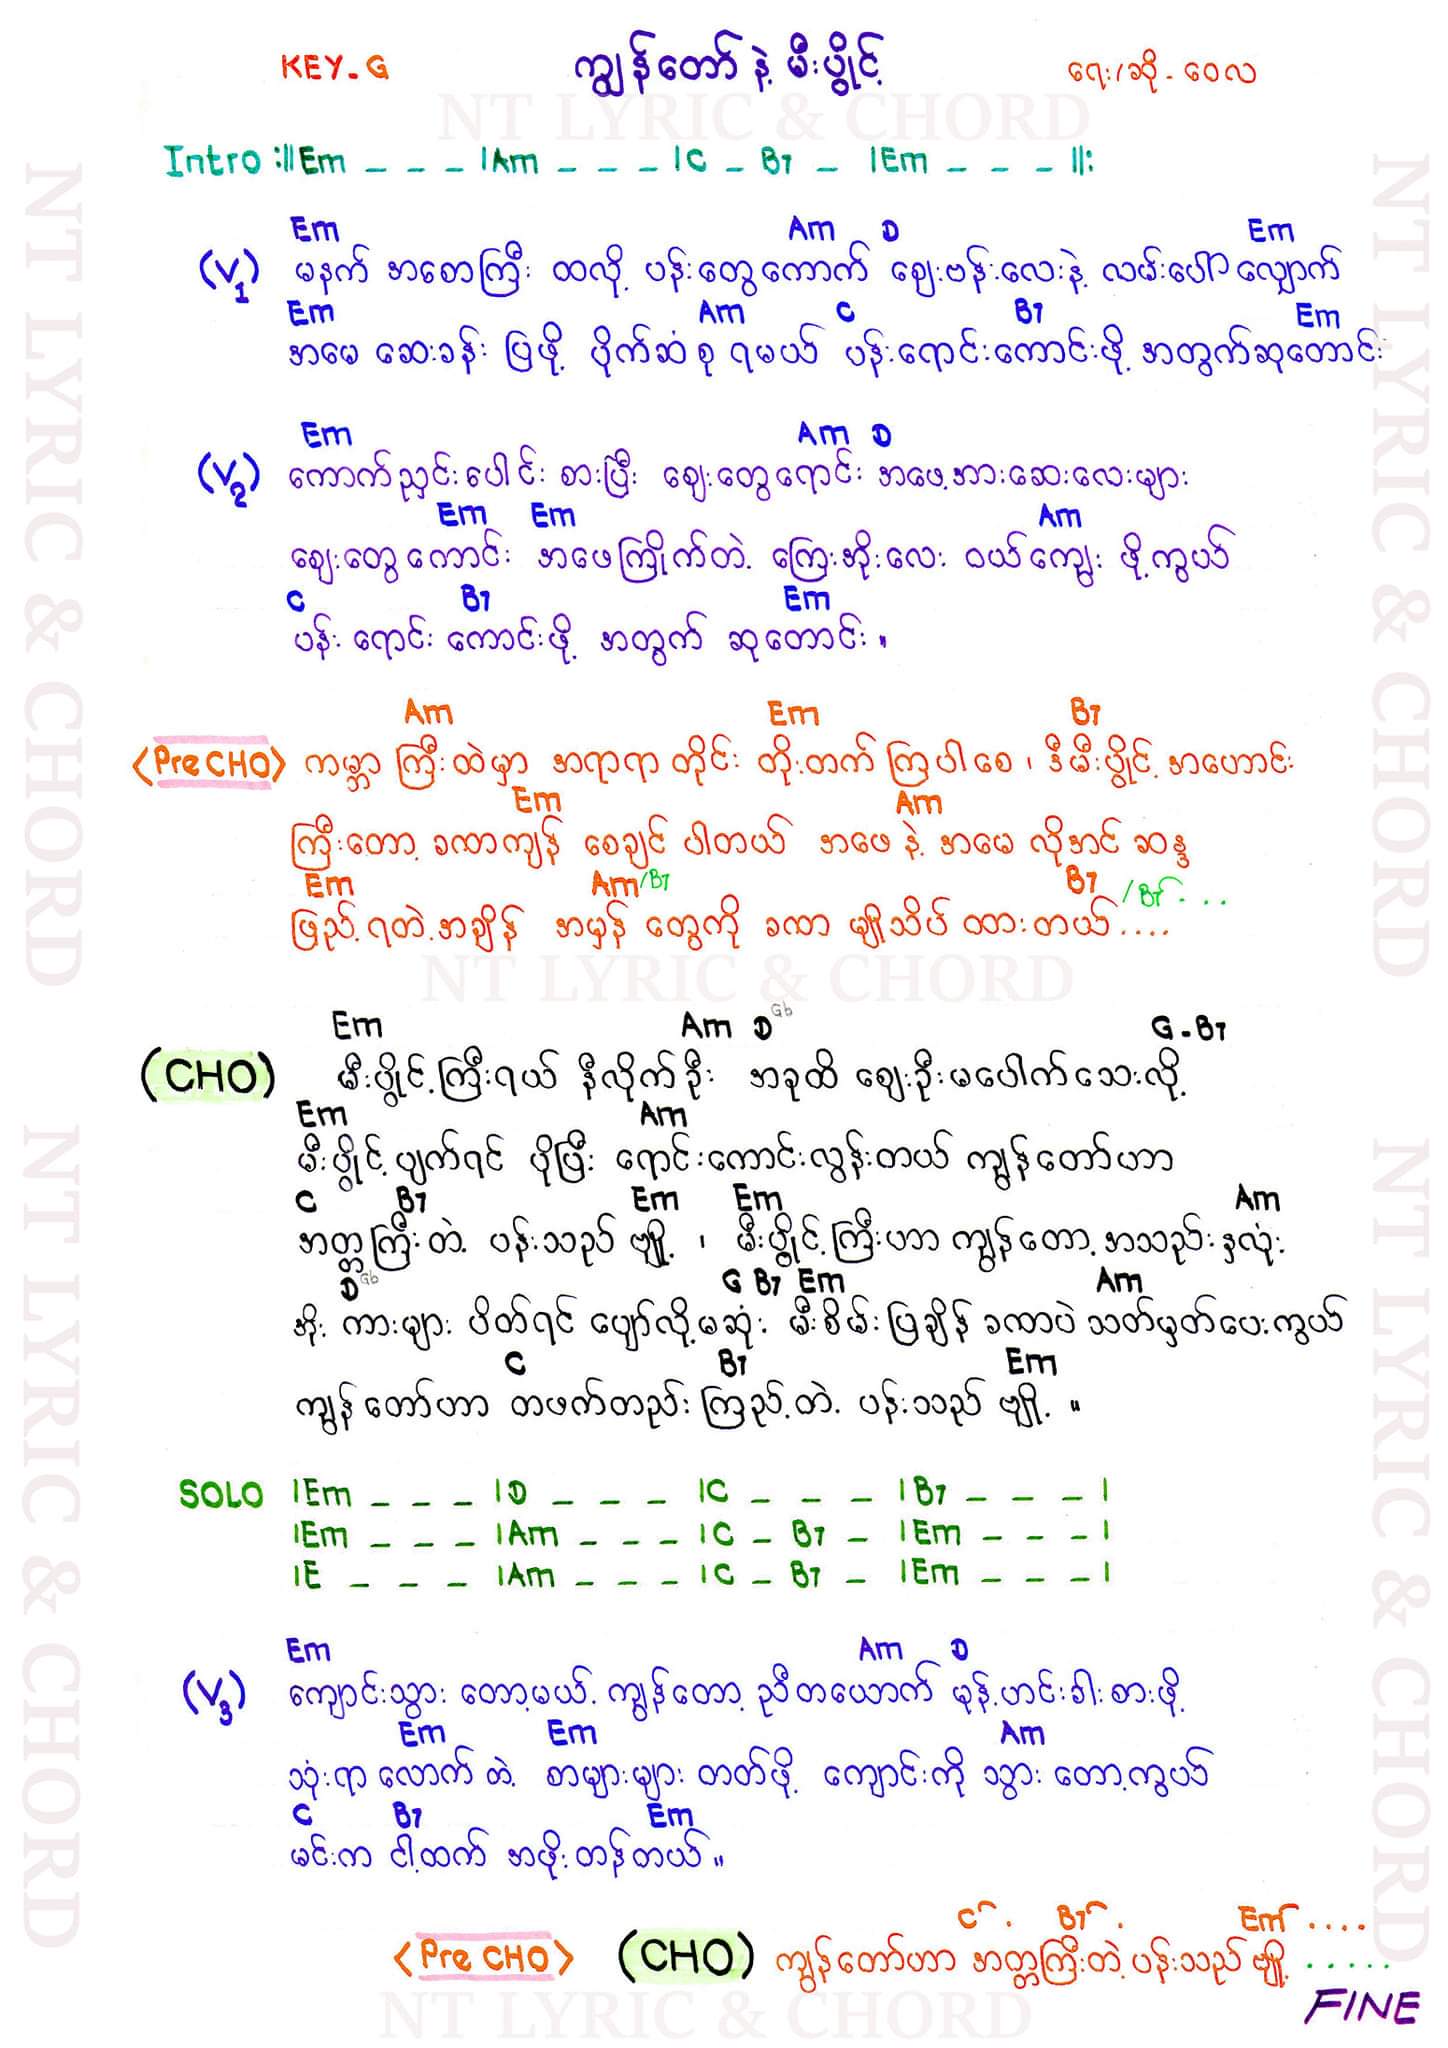 KEY-G ကျွန်တော် နဲ့ မီးပွိုင့် ရေး/ဆို - ဝေလ
NT LYRIC & CHORD
Intro :||Em _ _ _ |Am _ _ _ |C _ B7 _ |Em _ _ _ ||:
Em Am D Em
(V1) မနက် အစောကြီး ထလို့ ပန်းတွေကောက် ဈေးဗန်းလေးနဲ့ လမ်းပေါ် လျှောက်
Em Am C B7 Em
အမေ ဆေးခန်း ပြဖို့ ပိုက်ဆံ စု ရမယ် ပန်းရောင်းကောင်းဖို့ အတွက်ဆုတောင်း
Em Am D
(V2) ကောက်ညှင်းပေါင်း စားပြီး ဈေးတွေရောင်း အဖေ့အားဆေးလေးများ
Em Em Am
ဈေးတွေကောင်း အဖေကြိုက်တဲ့ ကြေးအိုးလေး ဝယ်ကျွေး ဖို့ ကွယ်
C B7 Em
ပန်း ရောင်း ကောင်းဖို့ အတွက် ဆုတောင်း ။
Am Em B7
<Pre CHO> ကမ္ဘာ ကြီးထဲမှာ အရာရာ တိုင်း တိုးတက် ကြပါစေ ၊ ဒီမီးပွိုင့် အဟောင်း
Em Am
ကြီးတော့ ခဏကျန် စေချင် ပါတယ် အဖေ နဲ့ အမေ လိုအင် ဆန္ဒ
Em Am/B7 B7 /B7 . . .
ဖြည့်ရတဲ့အချိန် အမှန် တွေကို ခဏ မျိုသိပ် ထားတယ် ....
NT LYRIC & CHORD
Em Am D Gb G - B7
(CHO) မီးပွိုင့်ကြီးရယ် နီလိုက်ဦး အခုထိ ဈေးဦးမပေါက်သေးလို့
Em Am
မီးပွိုင့် ပျက်ရင် ပိုပြီး ရောင်းကောင်းလွန်းတယ် ကျွန်တော်ဟာ
C B7 Em Em Am
အတ္တကြီးတဲ့ ပန်းသည် ဗျို့ ၊ မီးပွိုင့်ကြီးဟာ ကျွန်တော့အသည်းနှလုံး
D Gb G B7 Em Am
အိုး ကားများ ပိတ်ရင် ပျော်လို့မဆုံး မီးစိမ်းပြချိန် ခဏပဲ သတ်မှတ်ပေးကွယ်
C B7 Em
ကျွန်တော်ဟာ တဖက်တည်း ကြည့်တဲ့ ပန်းသည် ဗျို့ ။
SOLO |Em _ _ _ |D _ _ _ |C _ _ _ |B7 _ _ _ |
|Em _ _ _ |Am _ _ _ |C _ B7 _ |Em _ _ _ |
|E _ _ _ |Am _ _ _ |C _ B7 _ |Em _ _ _ |
Em Am D
(V3) ကျောင်းသွား တော့မယ့် ကျွန်တော့ ညီတယောက် မုန့်ဟင်းခါးစားဖို့
Em Em Am
သုံးရာ လောက်တဲ့ စာများများ တတ်ဖို့ ကျောင်းကို သွား တော့ကွယ်
C B7 Em
မင်းက ငါ့ထက် အဖိုးတန်တယ် ။
C . B7 . Em ....
<Pre CHO> (CHO) ကျွန်တော်ဟာ အတ္တကြီးတဲ့ ပန်းသည် ဗျို့ .....
FINE
NT LYRIC & CHORD
NT LYRIC & CHORD
NT LYRIC & CHORD
NT LYRIC & CHORD
NT LYRIC & CHORD